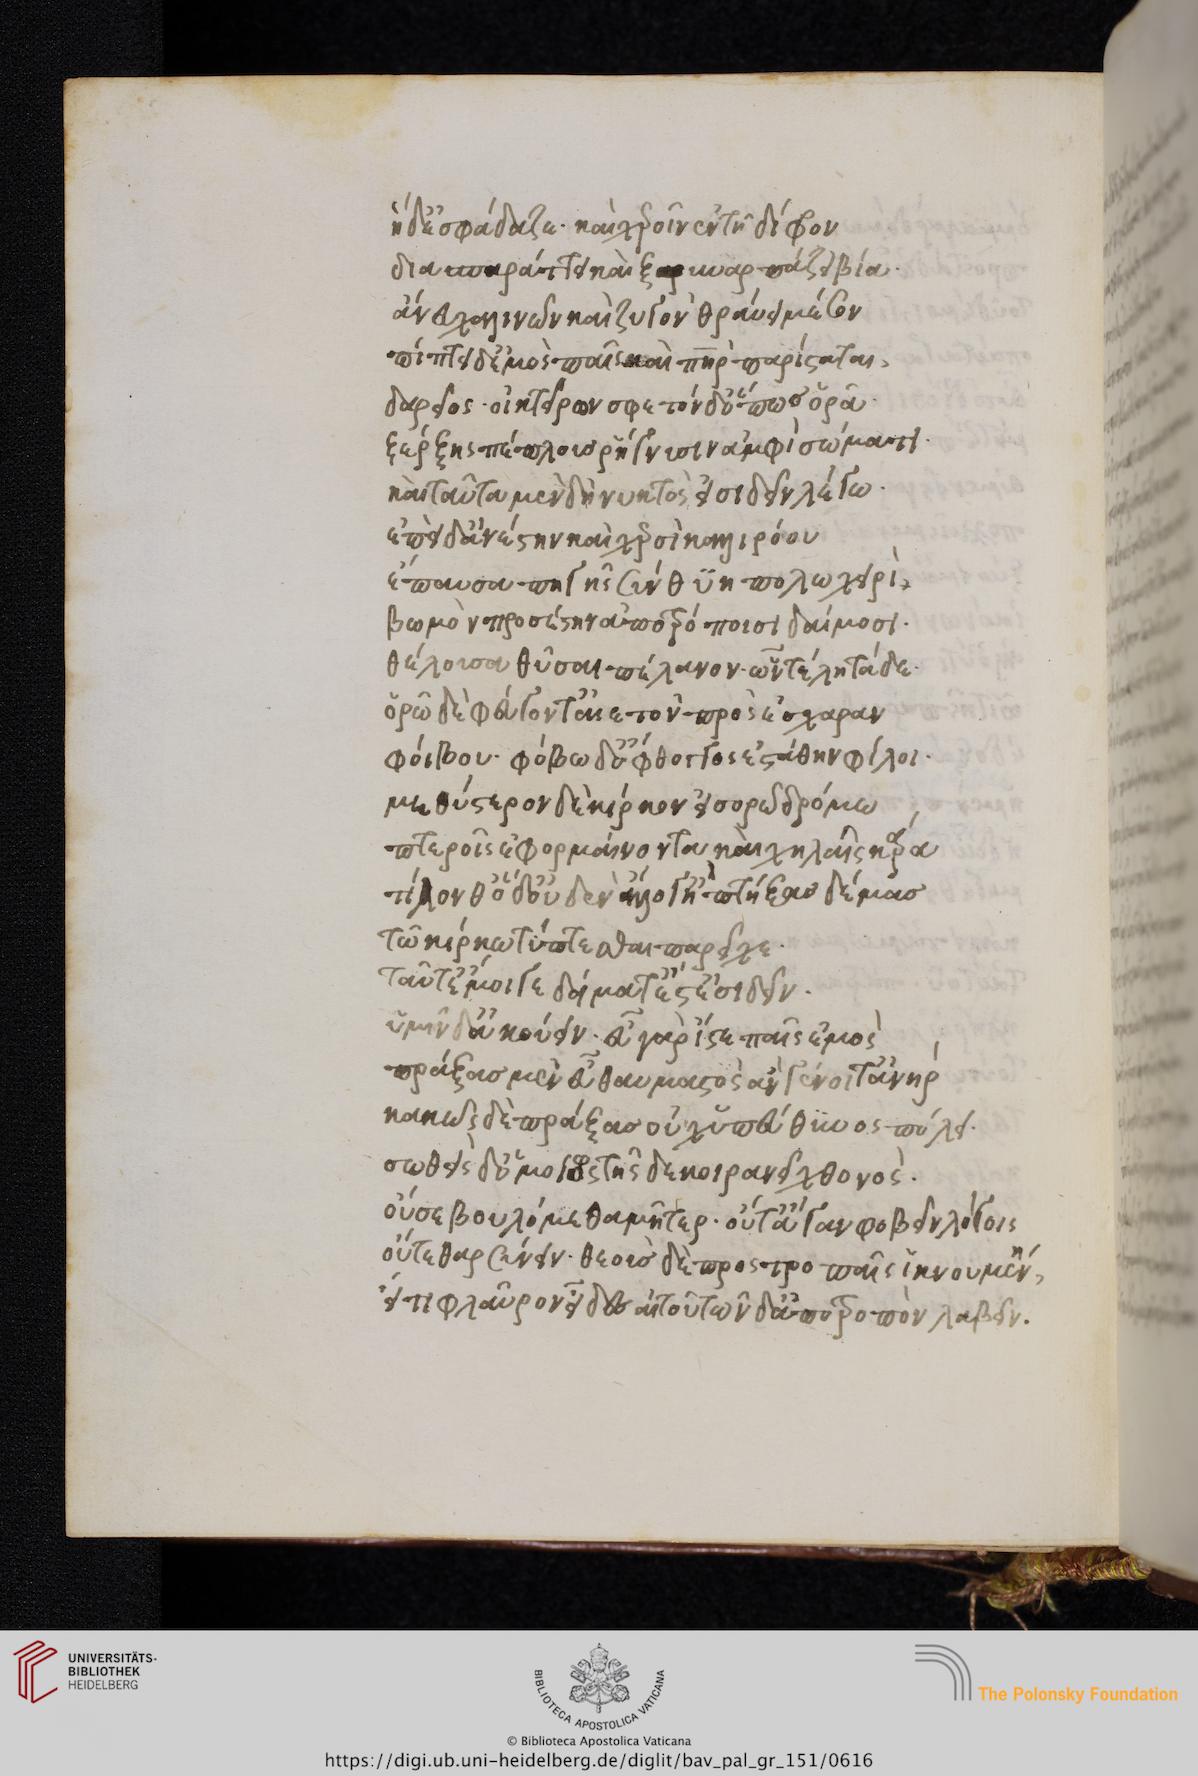 ἡ δ' ἐσφάδαζε· καὶ χεροῖν ἔντη δίφρου
διασπαράττει καὶ ξυναρπάζει βία·
ἄνευ χαλινῶν καὶ ζυγὸν θραύει μέσον
πίπτει δ' ἐμὸς παῖς καὶ πατὴρ παρίσταται,
δαρεῖος· οἰκτείρων σφε τὸν δ' ὅπως ὁρᾶ·
ξέρξης πέπλους ῥήγνυσιν ἀμφὶ σώματι·
καὶ ταῦτα μὲν δὴ νυκτὸς εἰσιδεῖν λέγω·
ἐπεὶ δ' ἀνέστην καὶ χεροῖν καλλιρόου
ἔψαυσα πηγῆς σὺν θυηπόλω χερὶ,
βωμὸν προσέστην ἀποτρόποισι δαίμοσι·
θέλουσα θῦσαι πέλανον· ὧν τέλη τάδε·
ὁρῶ δὲ φεύγοντ' αἰετὸν πρὸς ἐσχάραν
φοίβου· φόβω δ' ἄφθογγος ἐστάθην φίλοι·
μεθύστερον δὲ κίρκον εἰσορῶ δρόμω
πτεροῖς ἐφορμαίνοντα καὶ χηλαῖς κάρα
τίλλονθ' ὁ δ' οὐδὲν ἄλλο γ' ἢ πτήξας δέμας
παρεῖχε·
ταῦτ' ἔμοιγε δείματ' ἔστ' εἰσιδεῖν·
ὑμῖν δ' ἀκούειν· εὖ γὰρ ἴστε παῖς ἐμὸς
πράξας μὲν εὖ θαυμαστὸς ἂν γένοιτ' ἀνὴρ
κακῶς δὲ πράξας οὐχ ὑπεύθυνος πόλει·
σωθεὶς δ' ὁμοίως τῆσδε κοιρανεῖ χθονὸς·
οὔ σε βουλόμεθα μῆτερ· οὔτ' ἄγαν φοβεῖν λόγοις
οὔτε θαρσύνειν· θεοὺς δὲ προστροπαῖς ἱκνουμένη,
εἴ τι φλαῦρον εἶδες αἰτοῦ τῶνδ' ἀποτροπὴν λαβεῖν.
UNIVERSITÄTS-
BIBLIOTHEK
HEIDELBERG
BIBLIOTECA APOSTOLICA VATICANA
The Polonsky Foundation
© Biblioteca Apostolica Vaticana
https://digi.ub.uni-heidelberg.de/diglit/bav_pal_gr_151/0616